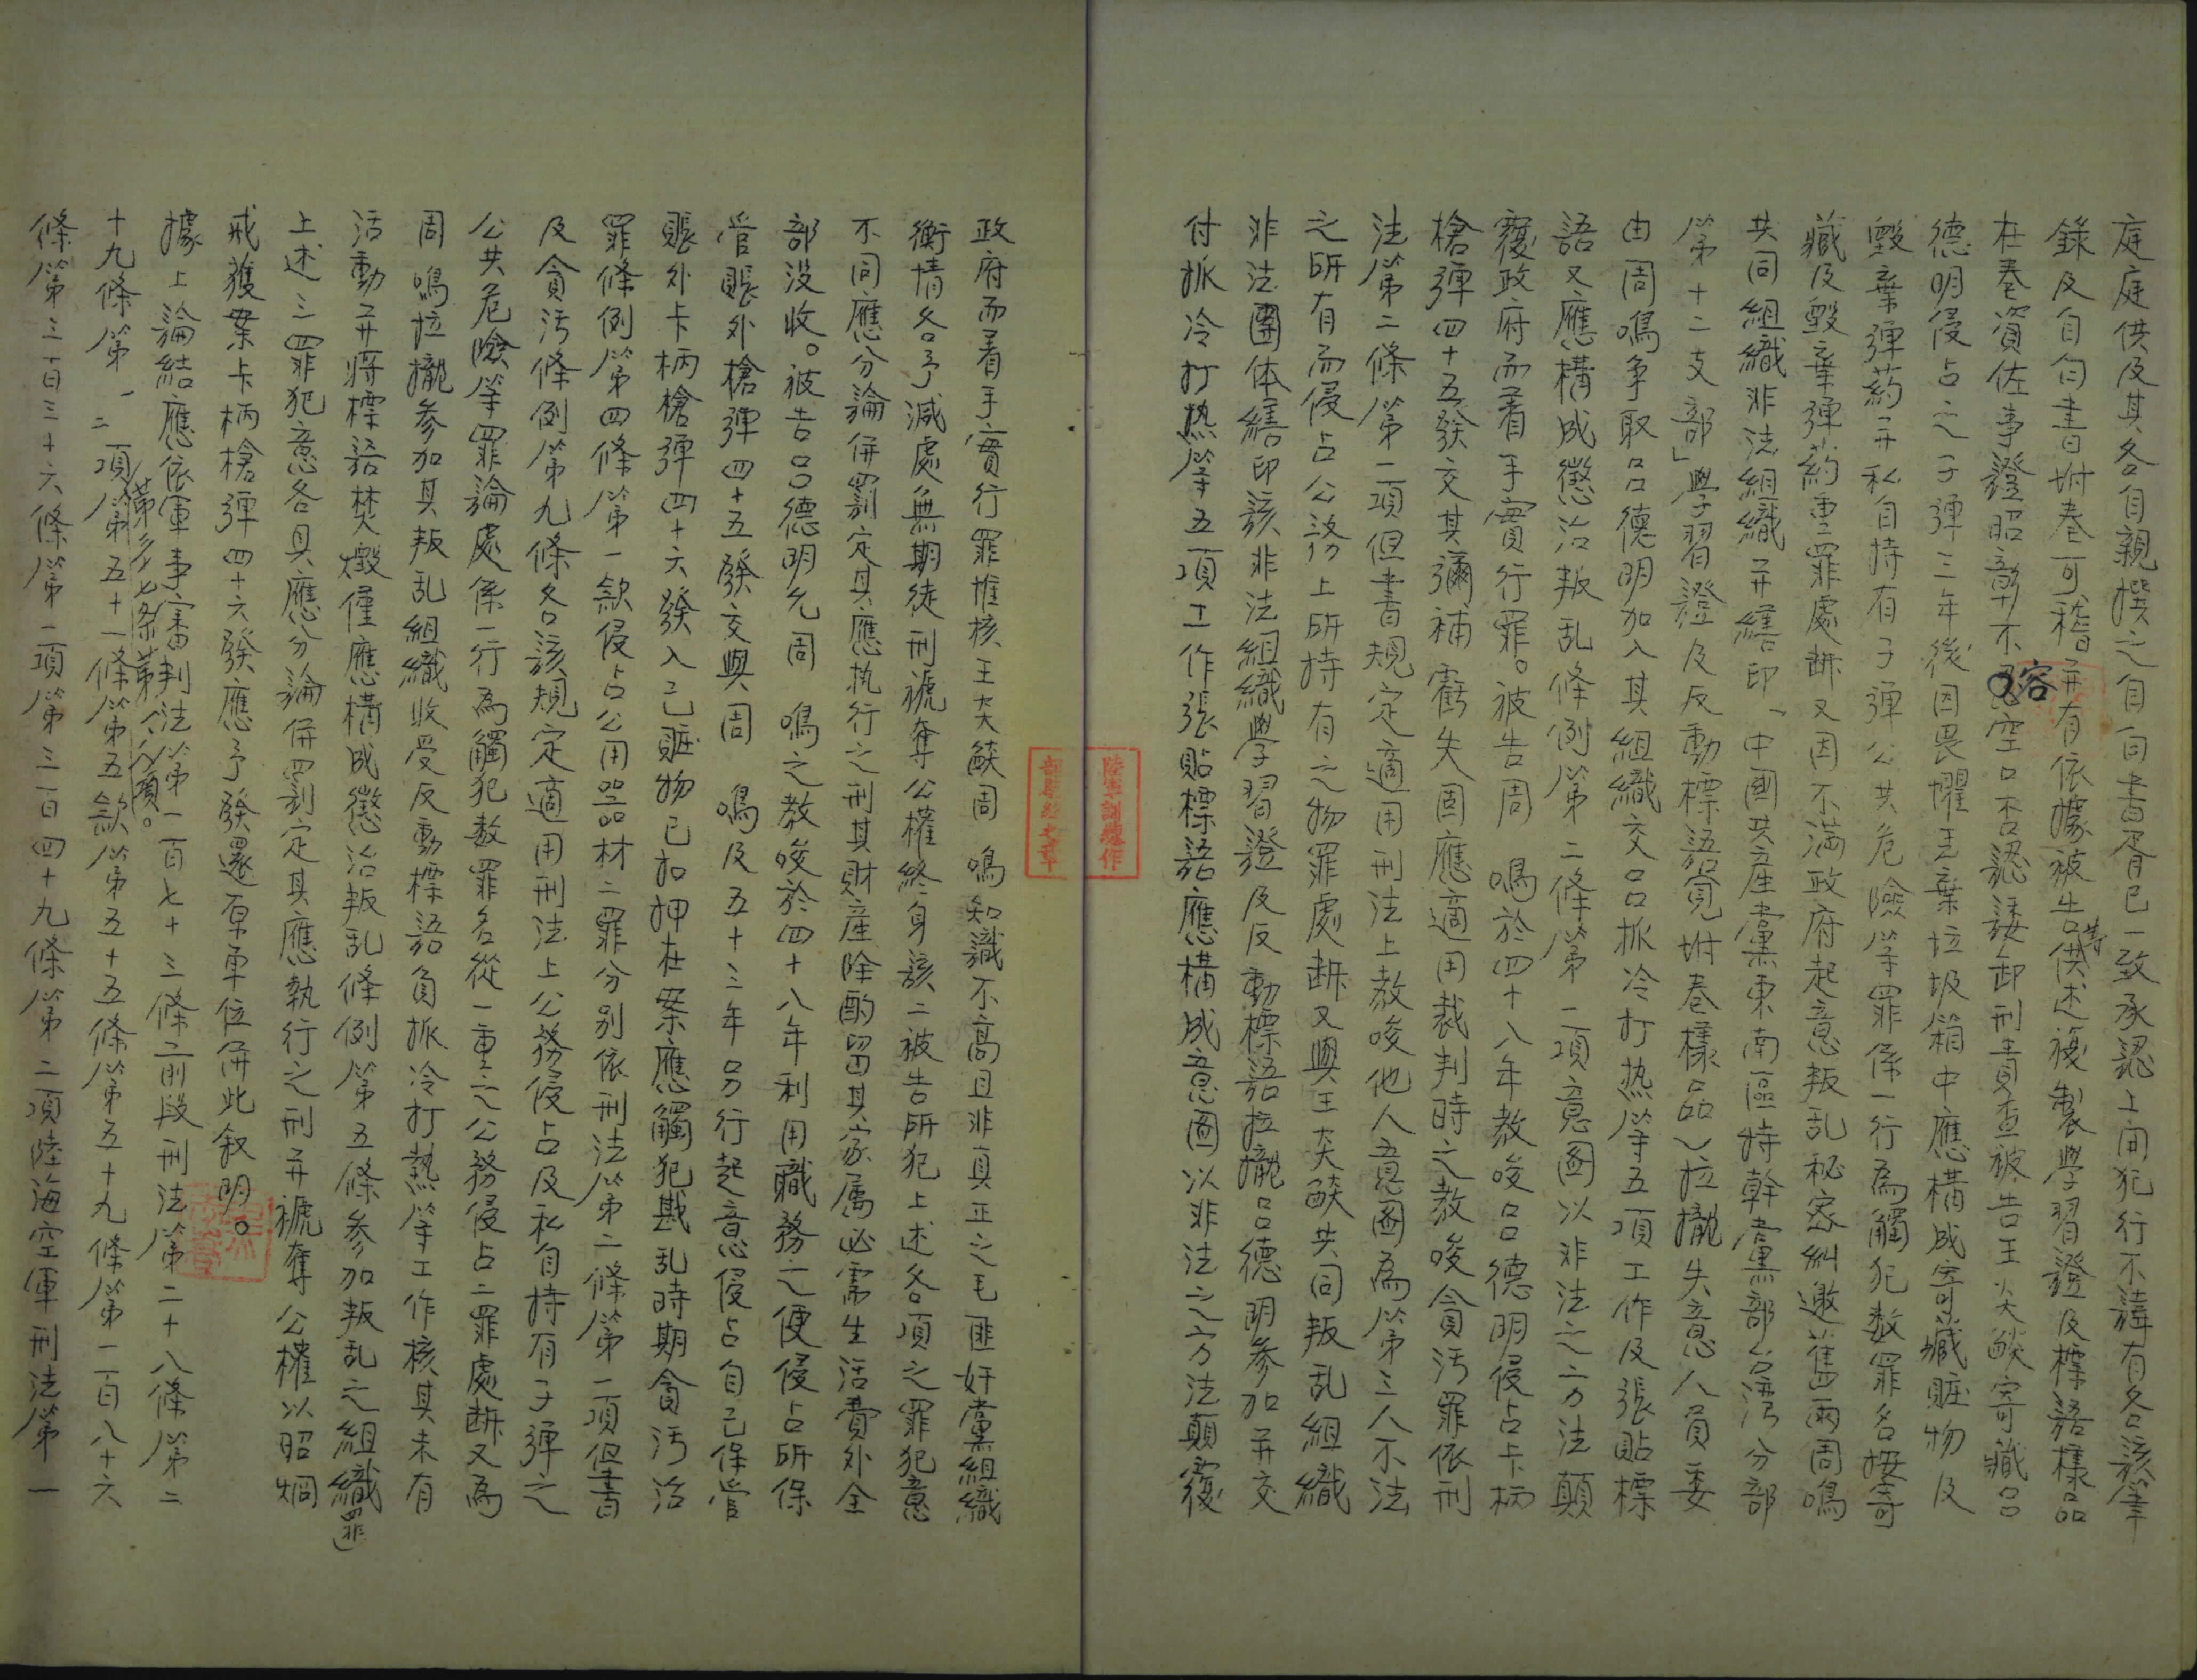 庭庭供及其各自親撰之自白書胥已一致承認上開犯行不諱有各該筆
錄及自白書坿卷可稽并有依據被告等供述複製學習證及標語樣品
在卷資佐事證昭彰不容空口否認諉卸刑責查被告王炎燄寄藏呂
德明侵占之子彈三年後因畏懼丟棄垃圾箱中應構成寄藏贓物及
毀棄彈葯并私自持有子彈公共危險等罪係一行為觸犯数罪名按寄
藏及毀棄彈葯重罪處斷又因不滿政府起意叛乱秘密糾邀舊雨周鳴
共同組織非法組織并繕印「中國共產黨東南區特幹黨部台湾分部
第十二支部」學習證及反動標語覓坿卷樣品〉拉攏失意人員委
由周鳴争取呂德明加入其組織交呂抓冷打热等五項工作及張貼標
語又應構成懲治叛乱條例第二條第一項意圖以非法之方法顛
覆政府而着手實行罪。被告周 鳴於四十八年教唆呂德明侵占卡柄
槍彈四十五發交其彌補虧失固應適用裁判時之教唆貪污罪依刑
法第二條第一項但書規定適用刑法上教唆他人意圖為第三人不法
之所有而侵占公務上所持有之物罪處斷又與王炎燄共同叛乱組織
非法團体繕印該非法組織學習證及反動標語拉攏呂德明参加并交
付抓冷打熱等五項工作張貼標語應構成意圖以非法之方法顛覆
陸軍訓練作
政府而着手實行罪惟核王炎燄周 鳴知識不高且非真正之毛匪奸黨組織
衡情各予減處無期徒刑褫奪公權終身該二被告所犯上述各項之罪犯意
不同應分論併罰定其應執行之刑其財産除酌留其家属必需生活費外全
部没收。被告呂德明允周 鳴之教唆於四十八年利用職務之便侵占所保
管賬外槍彈四十五發交與周 鳴及五十三年另行起意侵占自己保管
賬外卡柄槍彈四十六發入己賍物已扣押在案應觸犯戡乱時期貪污治
罪條例第四條第一款侵占公用器材二罪分別依刑法第二條第一項但書
及貪污條例第九條各該規定適用刑法上公務侵占及私自持有子彈之
公共危險等罪論處係一行為觸犯数罪名從一重之公務侵占二罪處斷又為
周鳴拉攏参加其叛乱組織收受反動標語負抓冷打熱等工作核其未有
活動并將標語焚燬僅應構成懲治叛乱條例第五條参加叛乱之組織罪
上述三罪犯意各具應分論併罰定其應執行之刑并褫奪公權以昭烱
戒獲案卡柄槍彈四十六發應予發還原单位併此敘明。
據上論結應依軍事審判法第一百七十三條前段刑法第二十八條第二
十九條第一二項第卅七条第一、二項。第五十一條第五款第五十五條第五十九條第一百八十六
條第三百三十六條第一項第三百四十九條第二項陸海空軍刑法第一